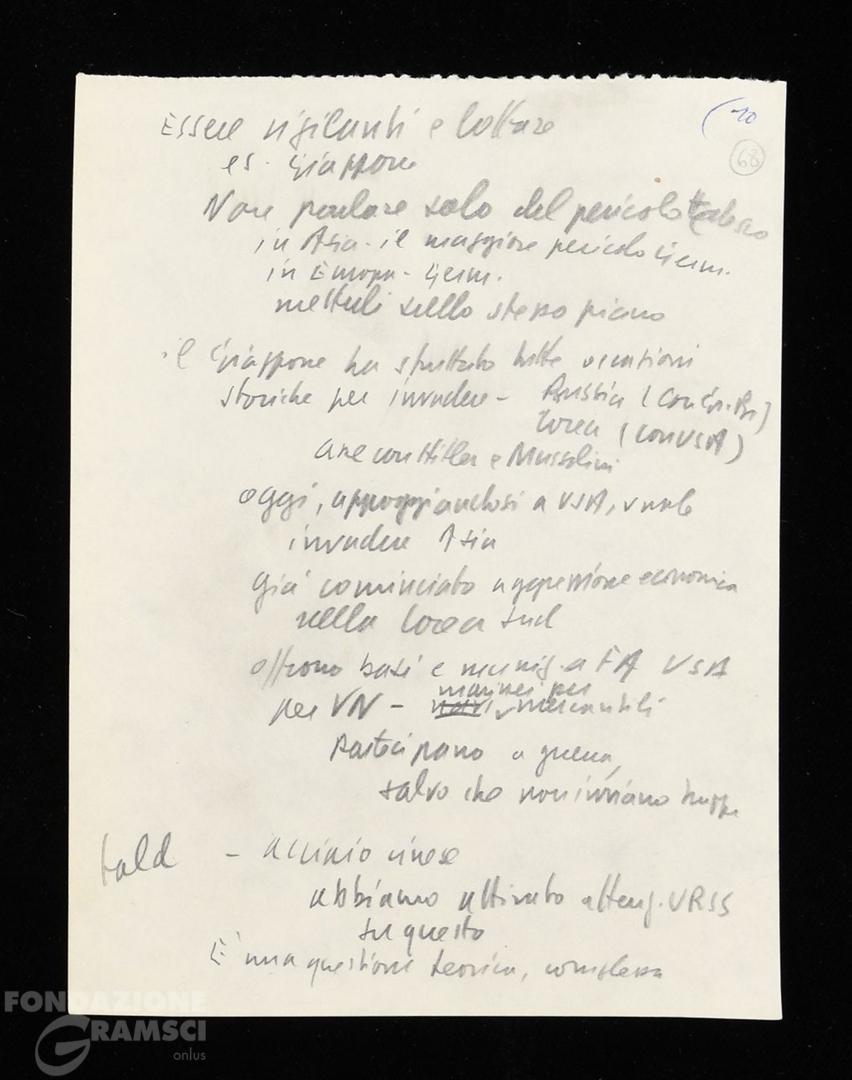 (10
68
Essere vigilanti e lottare
es. Giappone
Non parlare solo del pericolo tedesco
in Asia - il maggiore pericolo Germ.
in Europa - Germ.
metterli sullo stesso piano
il Giappone ha sfruttato tutte occasioni
storiche per invadere - Russia (con
Corea (con USA)
con Hitler e Mussolini
oggi, appoggiandosi a USA, vuole
invadere Asia
già cominciato aggressione economica
nella Corea sud
offrono basi e muniz. a FA USA
marinei per
per VN - navi mercantili
Partecipano a guerra,
salvo che non inviano truppe
Bald - acciaio cinese
abbiamo attirato atteng. URSS
su questo
E' una questione teorica, complessa
FONDAZIONE
GRAMSCI
onlus